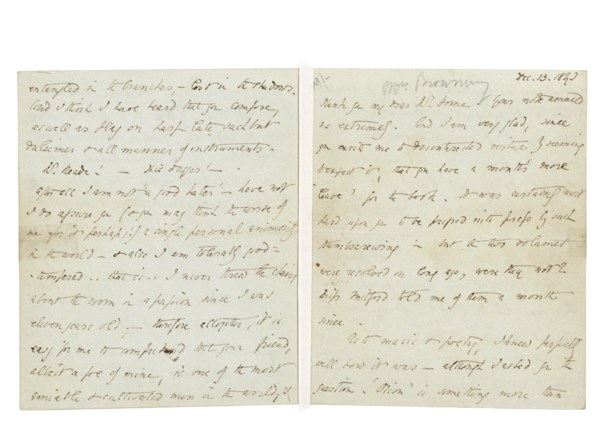 entangled in the branches, – lost in the shadows.
And I think I have heard that you compose,
as well as play on harp, lute, sackbut
dulcimer & all manner of instruments.
after all I am not 'a good hater' – have not
I do assure you (& you may think the worse of
me for it perhaps!) a single personal enmity
in the world – & also I am literally good-
tempered .. that is .. I never threw the chairs
about the room in a passion since I was
eleven years old, – therefore altogether, it is
easy for me to comprehend that your friend,
albeit a foe of mine, is one of the most
amiable & cultivated men in the world,
Mrs Browning
Dec. 13. 1843
Thank you my dear Mr. Horne. Your note
me extremely. And I am very glad, since
you excite me to disinterested
that you have a month's more
'leave' for the book. It was certainly
hard upon you to be into press by such
thumbscrewing – but the two volumes
were resolved on long ago, were they not?
Miss Mitford told me of them a month
since.
music & poetry, I knew perfectly
well how it was – although I asked you the
question. 'Orion' is something more than